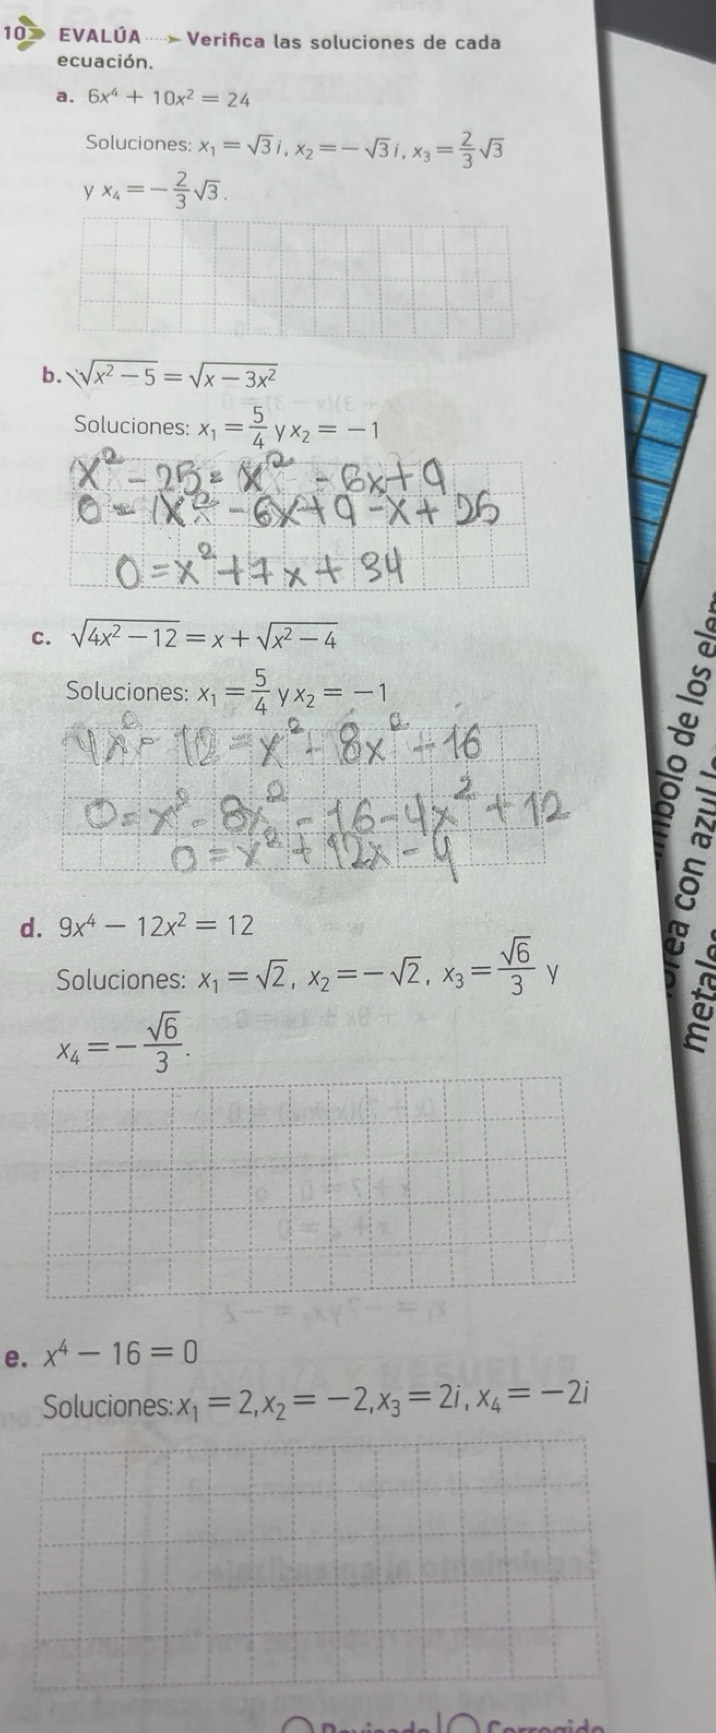 10 EVALÚA Verifica las soluciones de cada
ecuación.
a. 6x⁴ + 10x² = 24
Soluciones: x₁ = √3 i, x₂ = −√3 i, x₃ = 2/3 √3
y x₄ = −2/3 √3.
b. √(x² − 5) = √(x − 3x²)
Soluciones: x₁ = 5/4 y x₂ = −1
x² − 25 = x² − 6x + 9
0 = 1x² − 6x + 9 − x + 25
0 = x² + 7x + 34
c. √(4x² − 12) = x + √(x² − 4)
Soluciones: x₁ = 5/4 y x₂ = −1
4x² − 12 = x² − 8x² + 16
0 = x² − 8x² − 16 − 4x² + 12
0 = x² + 12x − 4
d. 9x⁴ − 12x² = 12
Soluciones: x₁ = √2, x₂ = −√2, x₃ = √6/3 y
x₄ = −√6/3.
e. x⁴ − 16 = 0
Soluciones: x₁ = 2, x₂ = −2, x₃ = 2i, x₄ = −2i
de los
con azul